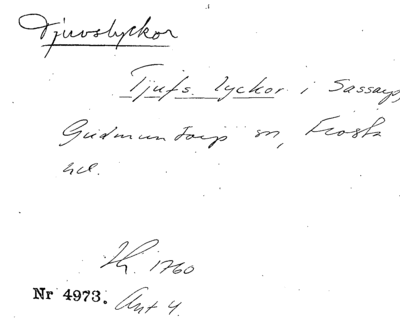 Tjuvslyckor
Tjufs lyckor i Sassarp,
Gudmuntorp sn, Frosta
hd.
Th. 1760
Nr 4973. Ant 4.